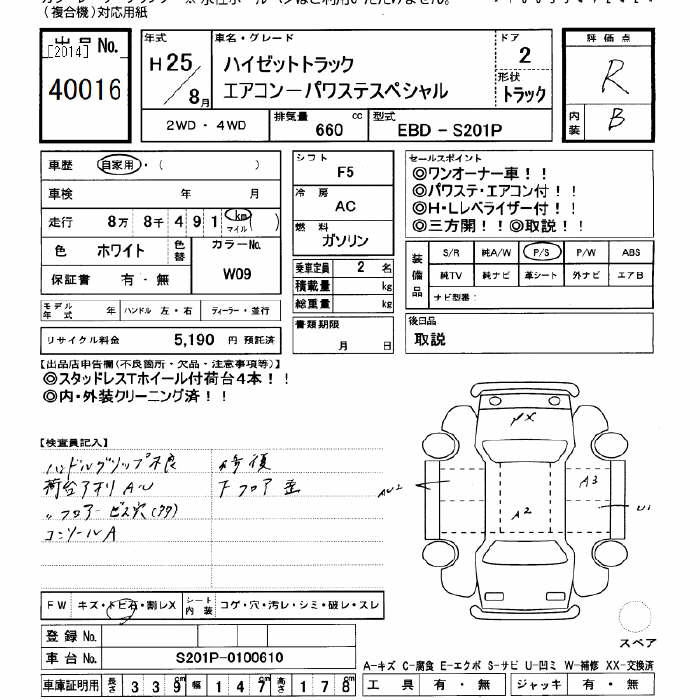 （複合機）対応用紙
出品 No.
[2014]
40016
年式
H25/8月
車名・グレード
ハイゼットトラック
エアコン－パワステスペシャル
ドア
2
形状
トラック
2WD・4WD
排気量 660 cc
型式 EBD－S201P
評価点
R
内装
B
車歴 自家用・（ ）
車検 年 月
走行 8万 8千 4 9 1 km マイル
色 ホワイト 色替
カラーNo.
W09
保証書 有・無
モデル年式 年 ハンドル 左・右 ディーラー・並行
リサイクル料金 5,190 円 預託済
シフト
F5
冷房
AC
燃料
ガソリン
乗車定員 2 名
積載量 kg
総重量 kg
書類期限
月 日
セールスポイント
◎ワンオーナー車！！
◎パワステ・エアコン付！！
◎H・Lレベライザー付！！
◎三方開！！◎取説！！
装備品
S/R 純A/W P/S P/W ABS
純TV 純ナビ 革シート 外ナビ エアB
ナビ型番：
後日品
取説
【出品店申告欄（不良箇所・欠品・注意事項等）】
◎スタッドレスTホイール付荷台4本！！
◎内・外装クリーニング済！！
【検査員記入】
ハンドルグリップ不良
荷台アオリ AU
〃フロアービス穴(タタ)
コンソールA
修復
下フロア歪
XX
AU2
A3
A2
U1
FW キズ・トビ石・割レX
シート内装 コゲ・穴・汚レ・シミ・破レ・スレ
登録 No.
車台 No. S201P-0100610
車庫証明用 長さ 3 3 9 cm 幅 1 4 7 cm 高さ 1 7 8 cm
スペア
A-キズ C-腐食 E-エクボ S-サビ U-凹ミ W-補修 XX-交換済
工具 有・無 ジャッキ 有・無